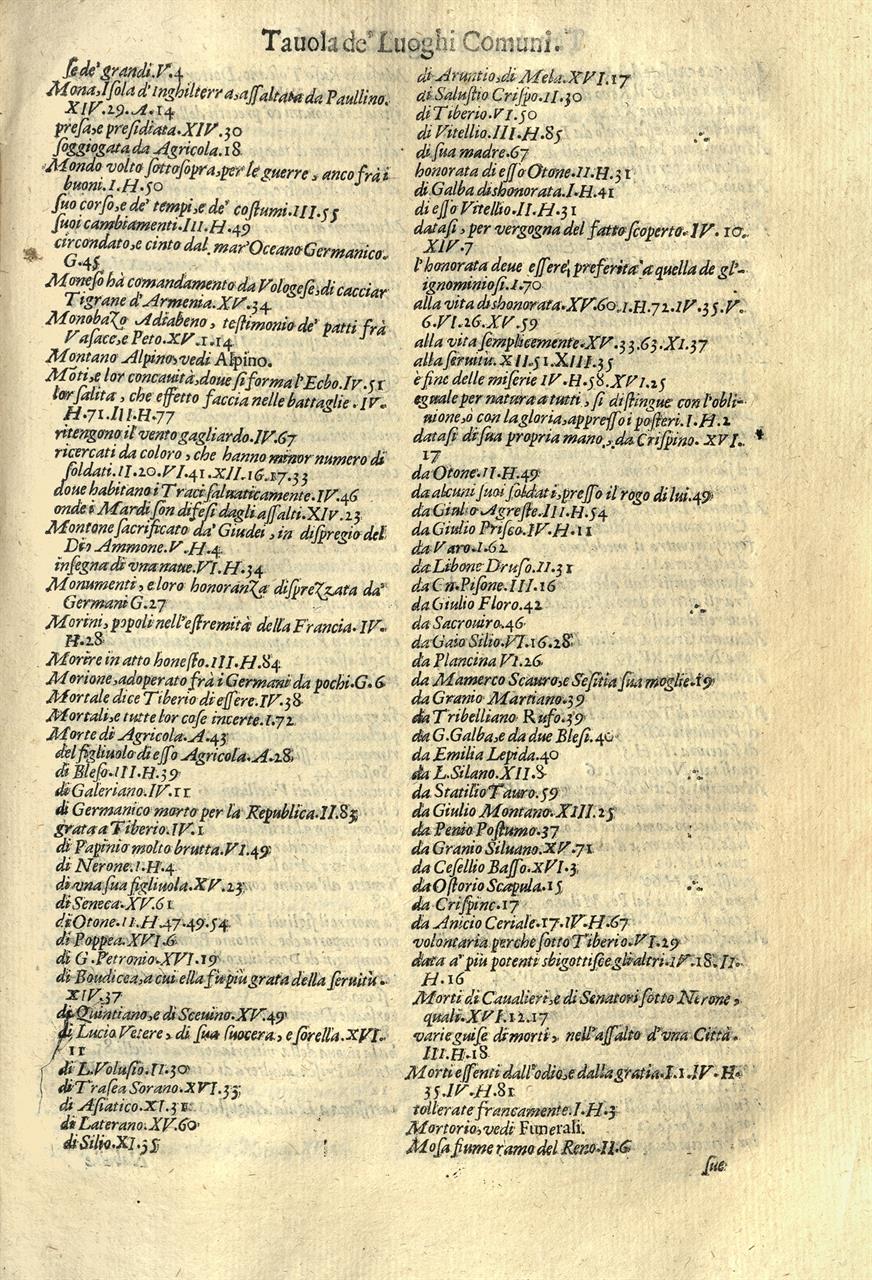 Tauola de' Luoghi Comuni.
se de' grandi.V.4
Mona, Isola d'Inghilterra, assaltata da Paullino.
XIV.29.A.14
presa, e presidiata.XIV.30
soggiogata da Agricola.18
Mondo volto sottosopra, per le guerre, anco frà i
buoni.I.H.50
suo corso, e de' tempi, e de' costumi.III.55
suoi cambiamenti.III.H.49
circondato, e cinto dal mar'Oceano Germanico.
G.45
Moneso hà comandamento da Vologese, di cacciar
Tigrane d'Armenia.XV.34
Monobazo Adiabeno, testimonio de' patti frà
Vasace, e Peto.XV.1.14
Montano Alpino, vedi Alpino.
Mōti, e lor concauità, doue si forma l'Echo.IV.51
lor salita, che effetto faccia nelle battaglie.IV.
H.71.III.H.77
ritengono il vento gagliardo.IV.67
ricercati da coloro, che hanno minor numero di
soldati.II.20.VI.41.XII.16.17.33
doue habitano i Traci saluaticamente.IV.46
onde i Mardi son difesi dagli assalti.XIV.23
Montone sacrificato da' Giudei, in dispregio del
Dio Ammone.V.H.4
insegna di vna naue.VI.H.34
Monumenti, e loro honoranza disprezzata da'
Germani G.27
Morini, popoli nell'estremità della Francia.IV.
H.28
Morire in atto honesto.III.H.84
Morione, adoperato frà i Germani da pochi.G.6
Mortale dice Tiberio di essere.IV.38
Mortali, e tutte lor cose incerte.I.72
Morte di Agricola.A.43
del figliuolo di esso Agricola.A.28
di Bleso.III.H.39
di Galeriano.IV.11
di Germanico morto per la Republica.II.83
grata a Tiberio.IV.1
di Papinio molto brutta.VI.49
di Nerone.I.H.4
di vna sua figliuola.XV.23
di Seneca.XV.61
di Otone.II.H.47.49.54
di Poppea.XVI.6
di G.Petronio.XVI.19
di Boudicea, a cui ella fu più grata della seruitù.
XIV.37
di Quintiano, e di Sceuino.XV.49
di Lucio Vetere, di sua suocera, e sorella.XVI.
11
di L.Volusio.II.30
di Trasea Sorano.XVI.33
di Asiatico.XI.31
di Laterano.XV.60
di Silio.XI.35
di Aruntio, di Mela.XVI.17
di Salustio Crispo.II.30
di Tiberio.VI.50
di Vitellio.III.H.85
di sua madre.67
honorata di esso Otone.II.H.31
di Galba dishonorata.I.H.41
di esso Vitellio.II.H.31
datasi, per vergogna del fatto scoperto.IV.10.
XIV.7
l'honorata deue essere, preferita a quella de gl'-
ignominiosi.I.70
alla vita dishonorata.XV.60.I.H.72.IV.35.V.
6.VI.26.XV.59
alla vita semplicemente.XV.33.63.XI.37
alla seruitù.XII.51.XIII.35
è fine delle miserie IV.H.58.XVI.25
eguale per natura a tutti, si distingue con l'obli-
uione, ò con la gloria, appresso i posteri.I.H.2
datasi di sua propria mano, da Crispino.XVI.
17
da Otone.II.H.49
da alcuni suoi soldati, presso il rogo di lui.49
da Giulio Agreste.III.H.54
da Giulio Prisco.IV.H.11
da Varo.I.62
da Libone Druso.II.31
da Cn.Pisone.III.16
da Giulio Floro.42
da Sacrouiro.46
da Gaio Silio.VI.16.28
da Plancina VI.26
da Mamerco Scauro, e Sestitia sua moglie.29
da Granio Martiano.39
da Tribelliano Rufo.39
da G.Galba, e da due Blesi.40
da Emilia Lepida.40
da L.Silano.XII.8
da Statilio Tauro.59
da Giulio Montano.XIII.25
da Penio Postumo.37
da Granio Siluano.XV.71
da Cesellio Basso.XVI.3
da Ostorio Scapula.15
da Crispino.17
da Anicio Ceriale.17.IV.H.67
volontaria perche sotto Tiberio.VI.29
data a' più potenti sbigottisce gli altri.IV.18.II.
H.16
Morti di Cavalieri, e di Senatori sotto Nerone,
quali.XVI.12.17
varie guise di morti, nell'assalto d'vna Città.
III.H.18
Morti essenti dall'odio, e dalla gratia.I.1.IV.H.
35.IV.H.81
tollerate francamente.I.H.3
Mortorio, vedi Funerali.
Mosa fiume ramo del Reno.II.6
sue